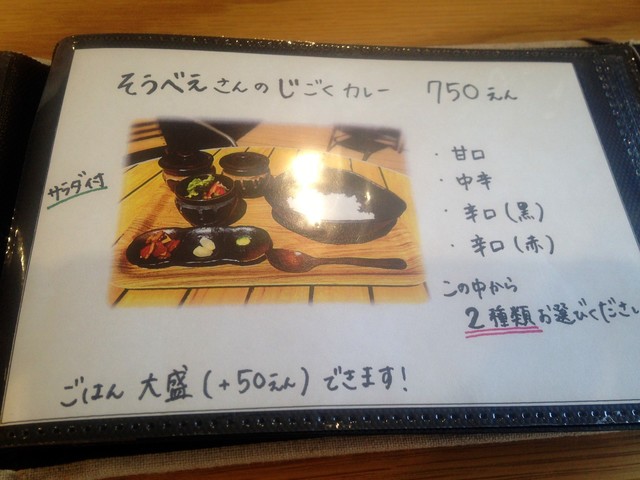 そうべえさんのじごくカレー 750えん
サラダ付
・甘口
・中辛
・辛口(黒)
・辛口(赤)
この中から
2種類お選びください
ごはん 大盛(+50えん)できます!